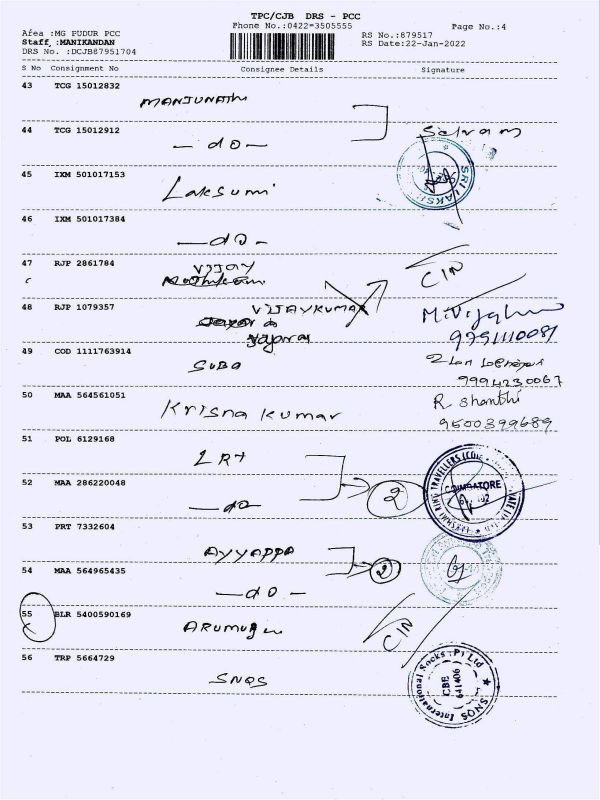 TPC/CJB DRS - PCC
Phone No.:0422=3505555
Page No.:4
Area :MG PUDUR PCC
Staff :MANIKANDAN
DRS No. :DCJB87951704
RS No.:879517
RS Date:22-Jan-2022
S No Consignment No Consignee Details Signature
43 TCG 15012832
MANJUNATH
44 TCG 15012912
— do —
Selvam
45 IXM 501017153
Laksumi
SRI LAKSH
46 IXM 501017384
— do —
47 RJP 2861784
VIJAY
CIN
48 RJP 1079357
VIJAYKUMAR
9791110081
49 COD 1111763914
SUBA
9994230067
50 MAA 564561051
Krisna Kumar
R Shanthi
9600399689
51 POL 6129168
LRT
52 MAA 286220048
— do
2
COIMBATORE
53 PRT 7332604
AYYAPPA
54 MAA 564965435
— do —
2
55 BLR 5400590169
ARUMUGM
CIN
56 TRP 5664729
SNQS
SNQS International Socks (P) Ltd
CBE
641406